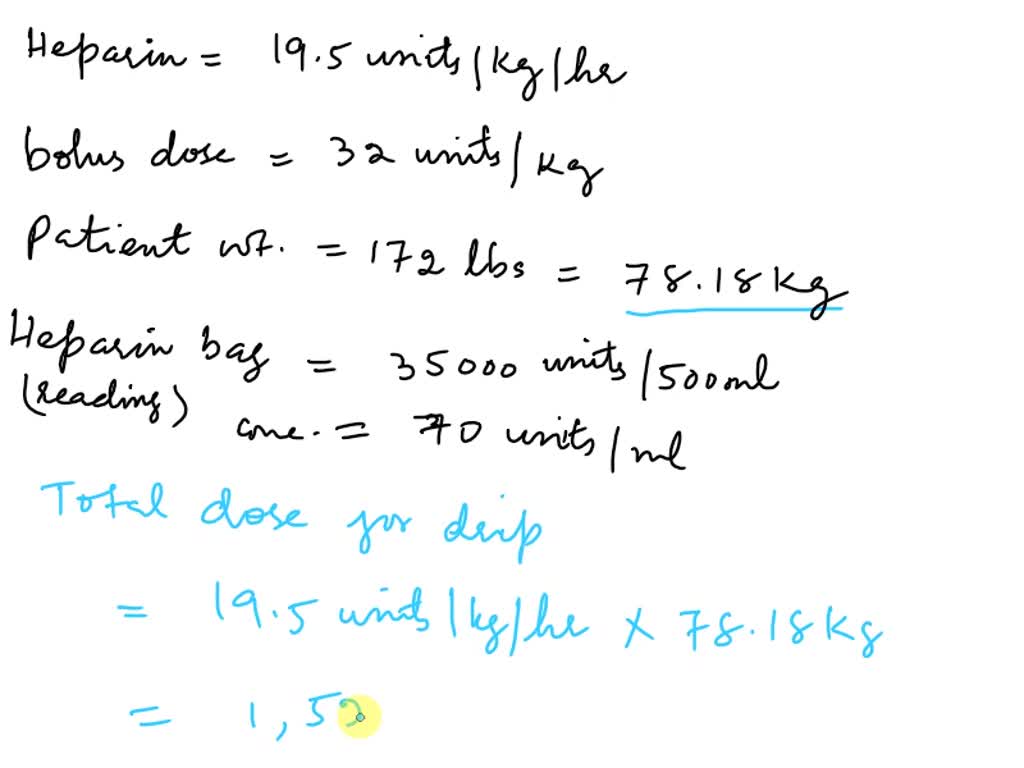 Heparin = 19.5 units/kg/hr
bolus dose = 32 units/kg
Patient wt. = 172 lbs = 78.18 kg
Heparin bag = 35000 units/500ml
(reading) conc. = 70 units/ml
Total dose for drip
= 19.5 units/kg/hr x 78.18 kg
= 1,52